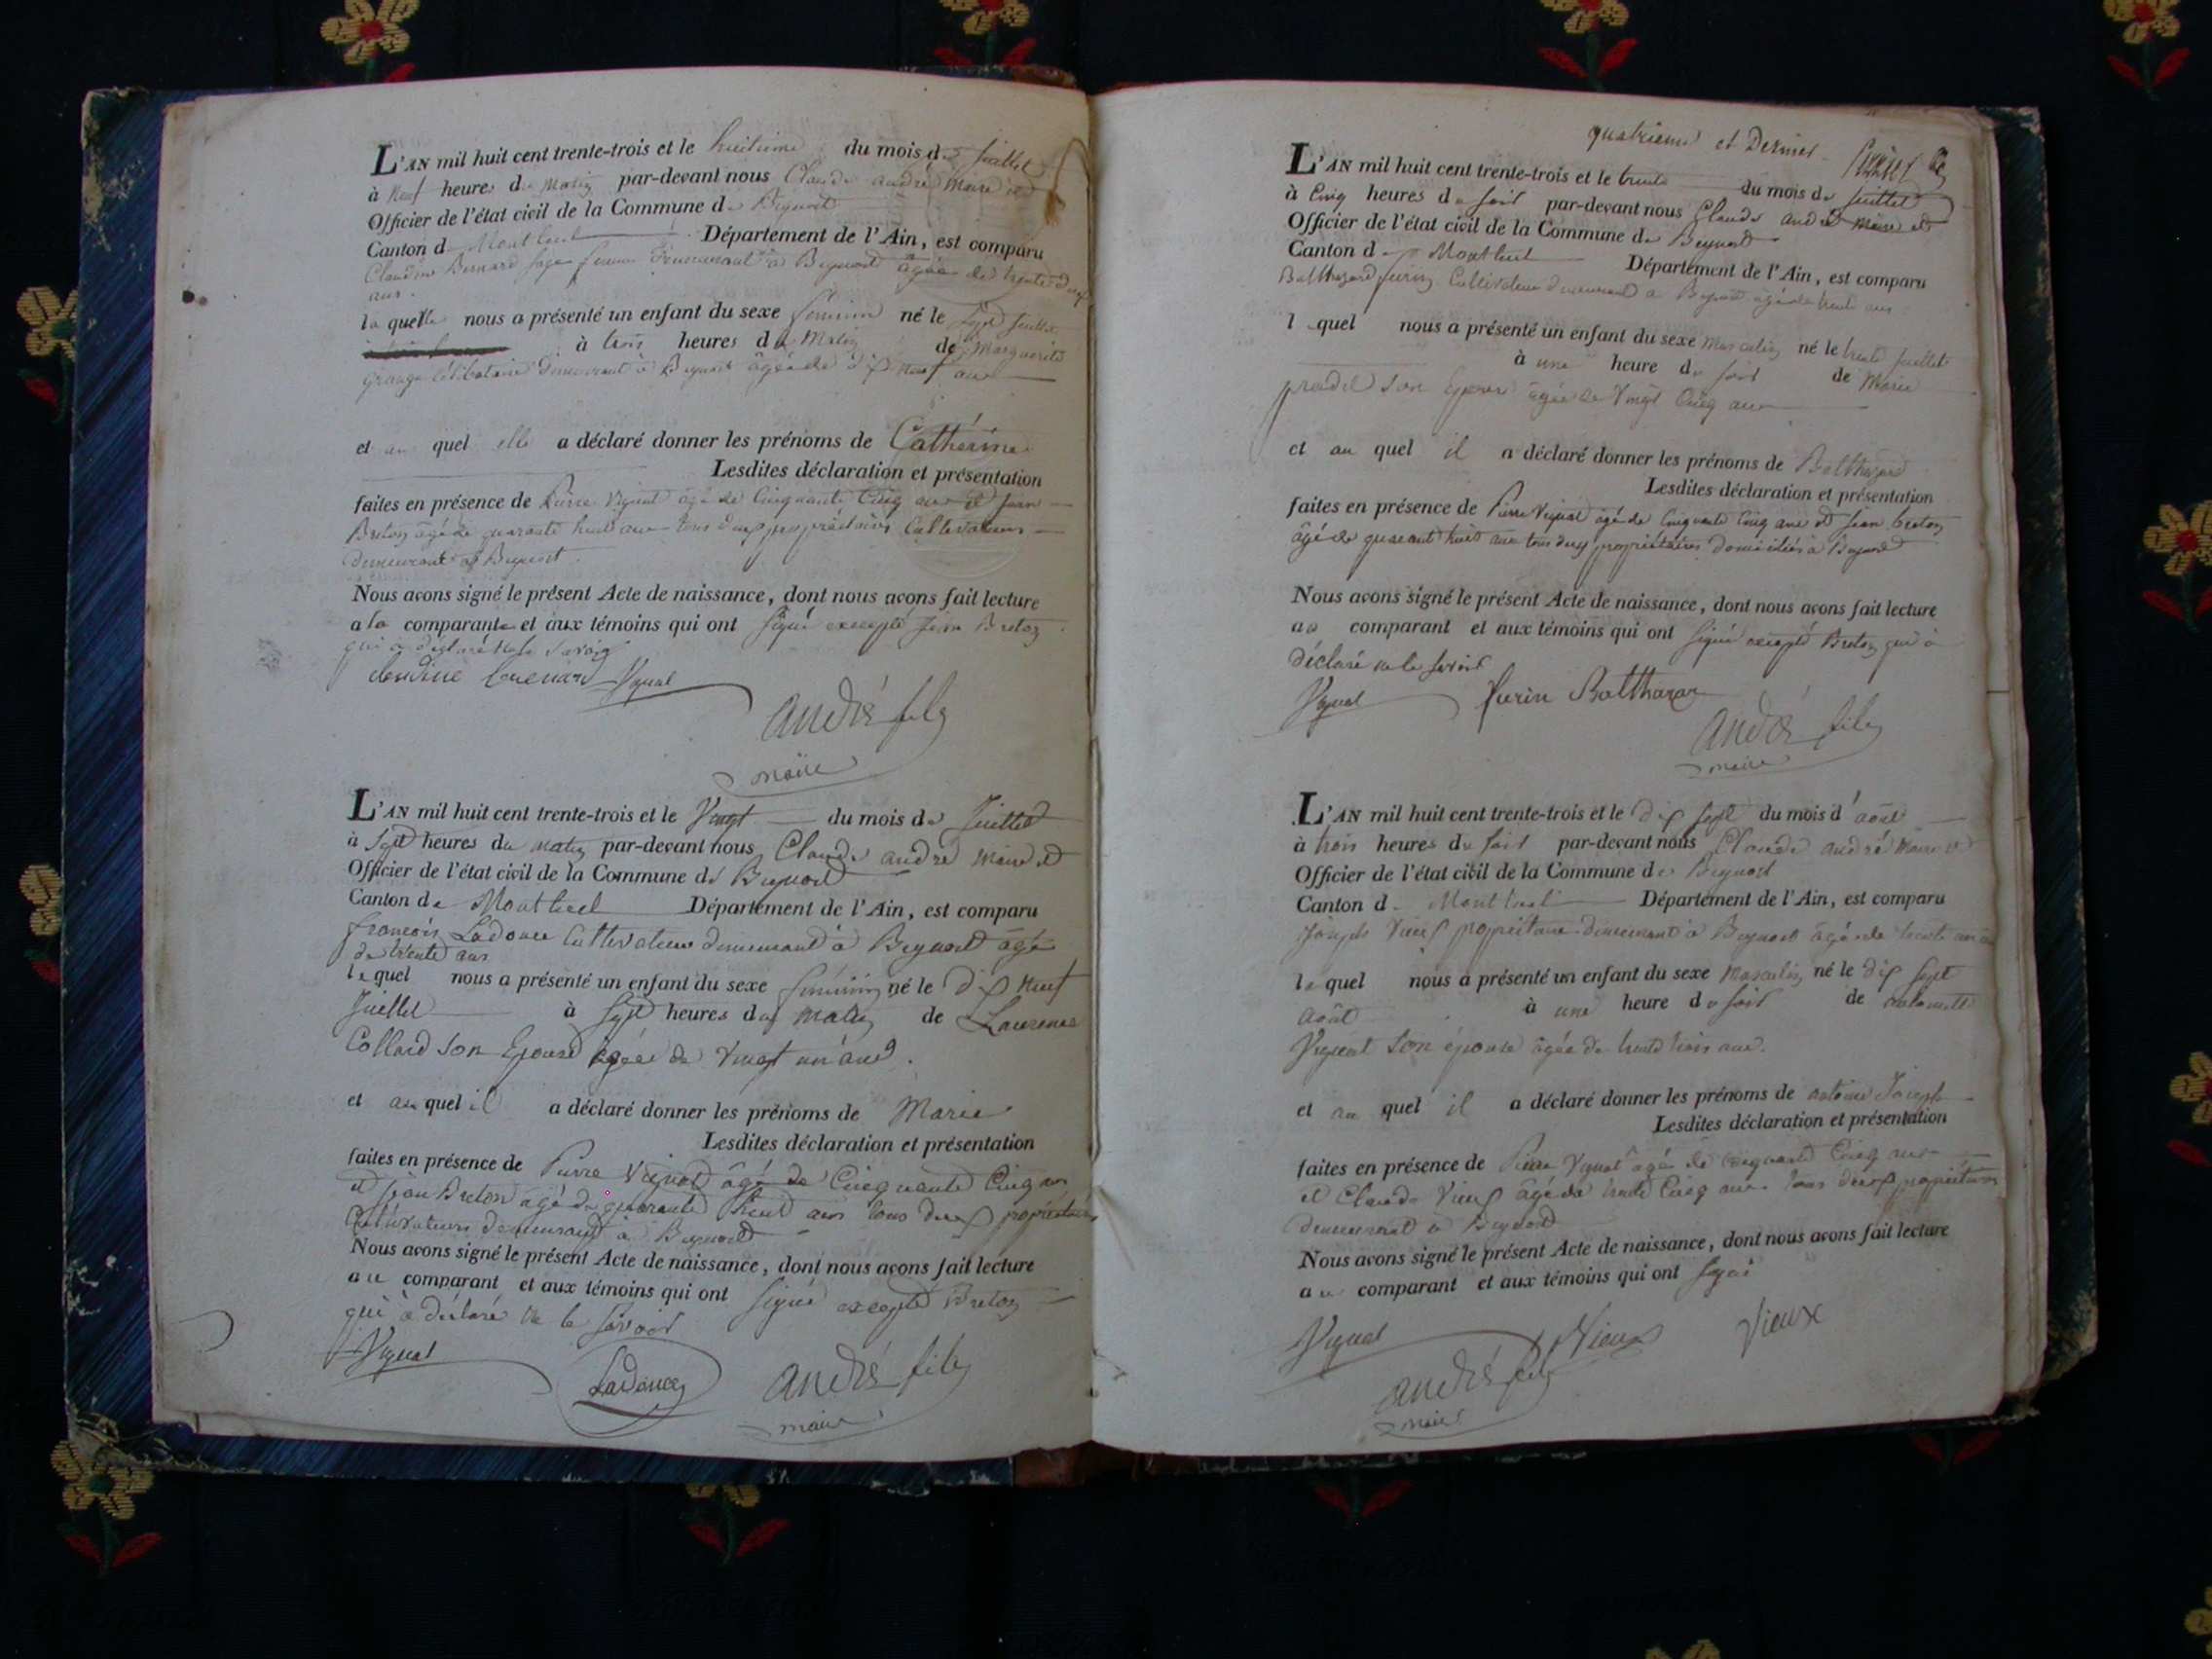 L'AN mil huit cent trente-trois et le huitieme du mois de Juillet
à neuf heures du Matin par-devant nous Claude andré Maire et
Officier de l'état civil de la Commune de Beynost
Canton de Montluel Département de l'Ain, est comparu
Claudine Bernard sage femme demeurant à Beynost âgée de trente deux
ans.
la quelle nous a présenté un enfant du sexe féminin né le Sept Juillet
à trois heures du Matin de Marguerite
Grange célibataire demeurant à Beynost âgée de dix neuf ans
et au quel elle a déclaré donner les prénoms de Cathérine
Lesdites déclaration et présentation
faites en présence de Pierre Vignat âgé de Cinquante Cinq ans et Jean
Breton âgé de quarante huit ans tous deux propriétaires Cultivateurs
demeurant à Beynost.
Nous avons signé le présent Acte de naissance, dont nous avons fait lecture
a la comparante et aux témoins qui ont signé excepté Jean Breton
qui a déclaré ne le savoir
Vignat
andré fils
maire
L'AN mil huit cent trente-trois et le Vingt du mois de Juillet
à Sept heures du matin par-devant nous Claude andré Maire et
Officier de l'état civil de la Commune de Beynost
Canton de Montluel Département de l'Ain, est comparu
françois Ladouce Cultivateur demeurant à Beynost âgé
de trente ans
le quel nous a présenté un enfant du sexe féminin né le Dix neuf
Juillet à Sept heures du matin de Laurence
Collard son Epouse âgée de Vingt un ans.
et au quel il a déclaré donner les prénoms de Marie
Lesdites déclaration et présentation
faites en présence de Pierre Vignat âgé de Cinquante Cinq ans
et Jean Breton âgé de quarante huit ans tous deux propriétaires
Cultivateurs demeurant à Beynost
Nous avons signé le présent Acte de naissance, dont nous avons fait lecture
au comparant et aux témoins qui ont signé excepté Breton
qui à déclaré ne le savoir
Vignat
Ladouce
andré fils
maire
quatrieme et Dernier
L'AN mil huit cent trente-trois et le trente du mois de Juillet
à Cinq heures du soir par-devant nous Claude andré Maire et
Officier de l'état civil de la Commune de Beynost
Canton de Montluel Département de l'Ain, est comparu
Balthazard Jurin Cultivateur demeurant à Beynost âgé de trente ans
l quel nous a présenté un enfant du sexe Masculin né le trente Juillet
à une heure du soir de Marie
pradel son Epouse âgée de Vingt Cinq ans
et au quel il a déclaré donner les prénoms de Balthazard
Lesdites déclaration et présentation
faites en présence de Pierre Vignat âgé de Cinquante Cinq ans et Jean breton
âgé de quarante huit ans tous deux propriétaires domiciliés à Beynost
Nous avons signé le présent Acte de naissance, dont nous avons fait lecture
au comparant et aux témoins qui ont signé excepté Breton qui à
déclaré ne le savoir
Vignat
Jurin Balthazar
andré fils
maire
L'AN mil huit cent trente-trois et le dix sept du mois d'août
à trois heures du soir par-devant nous Claude andré Maire et
Officier de l'état civil de la Commune de Beynost
Canton de Montluel Département de l'Ain, est comparu
Joseph Vieux propriétaire demeurant à Beynost âgé de trente ans
le quel nous a présenté un enfant du sexe Masculin né le dix sept
août à une heure du soir de
Vignat son épouse âgée de trente trois ans.
et au quel il a déclaré donner les prénoms de antoine Joseph
Lesdites déclaration et présentation
faites en présence de Pierre Vignat âgé de Cinquante Cinq ans
et Claude Vieux âgé de trente Cinq ans tous deux propriétaires
demeurant à Beynost
Nous avons signé le présent Acte de naissance, dont nous avons fait lecture
au comparant et aux témoins qui ont signé
Vignat
Vieux
Vieux
andré fils
maire